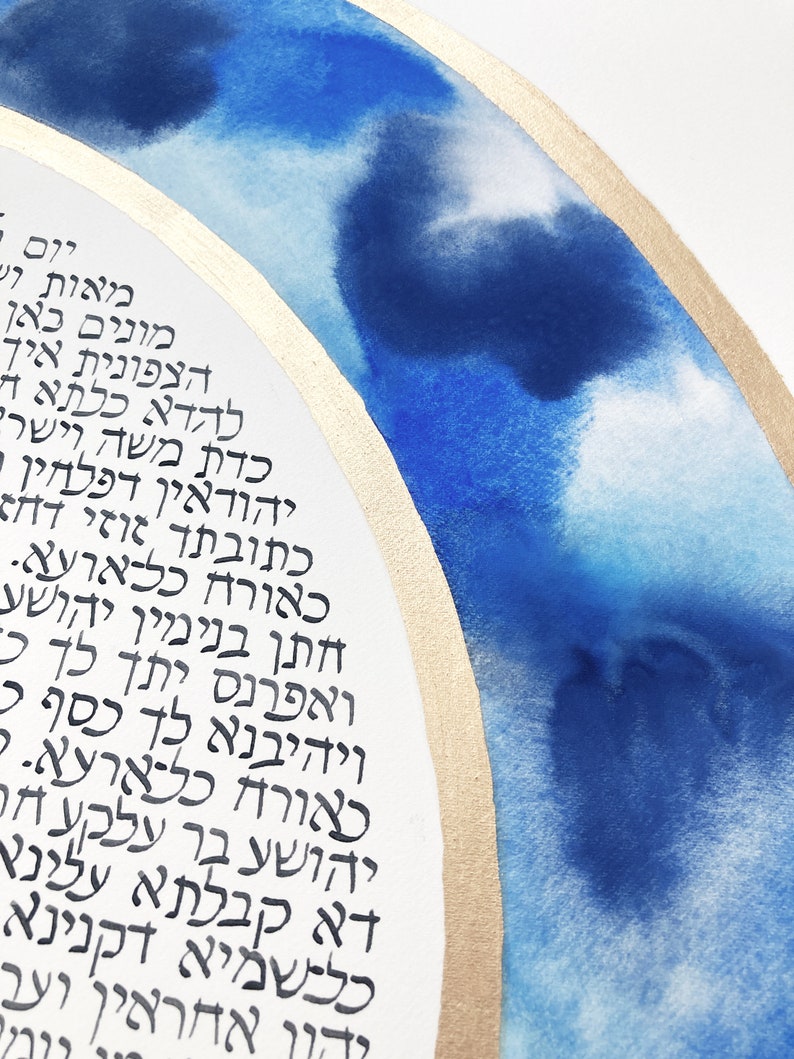 יום
מאות
מונים כאן
הצפונית איך
להדא כלתא
כדת משה וישר
יהודאין דפלחין
כתובתד זוזי דחז
כאורח כל־ארעא.
חתן בנימין יהושע
ואפרנס יתך לך
ויהיבנא לך כסף
כאורח כל־ארעא.
יהושע בר עלקע
דא קבלתא עלינא
כל־שמיא דקנינא
יהון אחראין וער